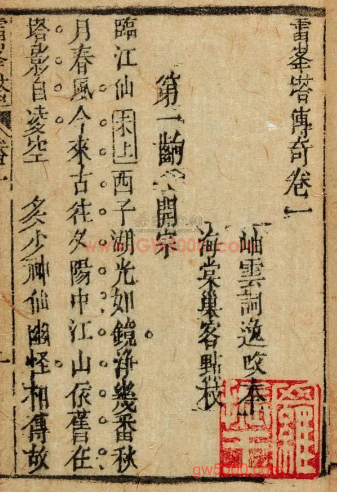 雷峯塔傳奇卷一
岫雲詞逸改本
海棠巢客點校
第一齣 開宗
臨江仙 末上 西子湖光如鏡淨幾番秋
月春風今來古往夕陽中江山依舊在
塔影自凌空 多少神仙幽怪相傳故
gw5000.com